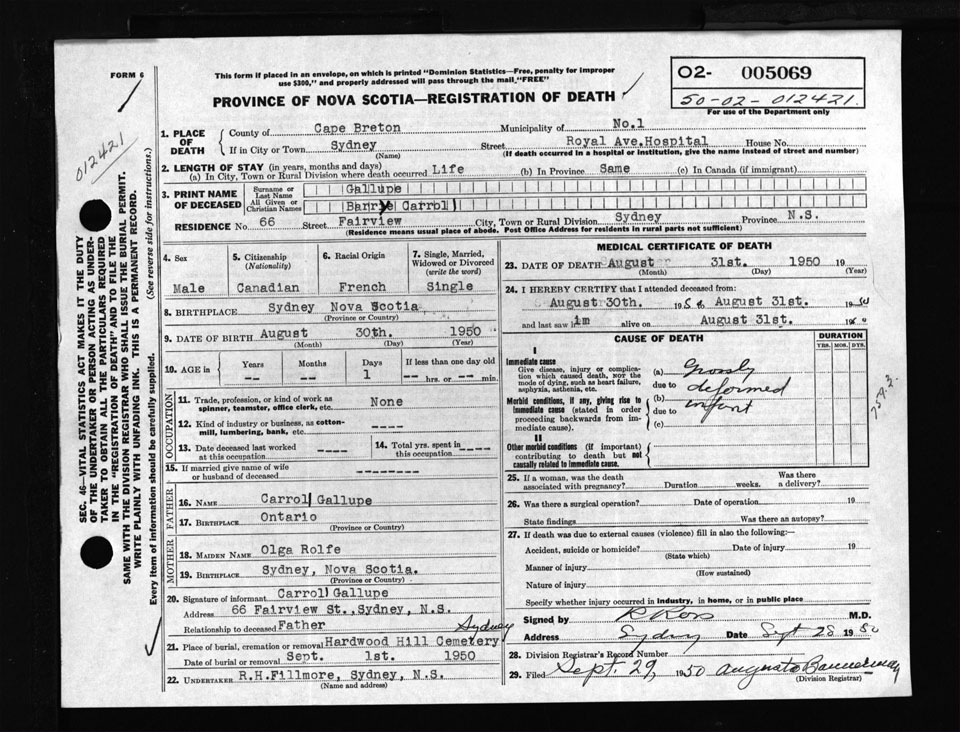 FORM 6
This form if placed in an envelope, on which is printed "Dominion Statistics—Free, penalty for improper
use $300," and properly addressed will pass through the mail "FREE"
PROVINCE OF NOVA SCOTIA—REGISTRATION OF DEATH
02- 005069
50-02-012421
For use of the Department only
012421
SEC. 46—VITAL STATISTICS ACT MAKES IT THE DUTY
OF THE UNDERTAKER OR PERSON ACTING AS UNDER-
TAKER TO OBTAIN ALL THE PARTICULARS REQUIRED
IN THE "REGISTRATION OF DEATH" AND TO FILE THE
SAME WITH THE DIVISION REGISTRAR WHO SHALL ISSUE THE BURIAL PERMIT.
WRITE PLAINLY WITH UNFADING INK. THIS IS A PERMANENT RECORD.
Every item of information should be carefully supplied. (See reverse side for instructions.)
1. PLACE OF DEATH
County of Cape Breton Municipality of No.1
If in City or Town Sydney Street Royal Ave.Hospital House No.
(Name) (If death occurred in a hospital or institution, give the name instead of street and number)
2. LENGTH OF STAY (in years, months and days)
(a) In City, Town or Rural Division where death occurred Life (b) In Province Same (c) In Canada (if immigrant)
3. PRINT NAME OF DECEASED
Surname or Last Name Gallupe
All Given or Christian Names Barrye Carrol
RESIDENCE No. 66 Street Fairview City, Town or Rural Division Sydney Province N.S.
(Residence means usual place of abode. Post Office Address for residents in rural parts not sufficient)
4. Sex 5. Citizenship (Nationality) 6. Racial Origin 7. Single, Married, Widowed or Divorced (write the word)
Male Canadian French Single
8. BIRTHPLACE Sydney Nova Scotia
(Province or Country)
9. DATE OF BIRTH August 30th. 1950
(Month) (Day) (Year)
10. AGE in Years Months Days If less than one day old
-- -- 1 -- hrs. or -- min.
OCCUPATION
11. Trade, profession, or kind of work as
spinner, teamster, office clerk, etc. None
12. Kind of industry or business, as cotton-
mill, lumbering, bank, etc. ----
13. Date deceased last worked at this occupation ---- 14. Total yrs. spent in this occupation ----
15. If married give name of wife
or husband of deceased --------
FATHER
16. NAME Carrol Gallupe
17. BIRTHPLACE Ontario
(Province or Country)
MOTHER
18. MAIDEN NAME Olga Rolfe
19. BIRTHPLACE Sydney, Nova Scotia.
(Province or Country)
20. Signature of informant Carrol Gallupe
Address 66 Fairview St.,Sydney, N.S.
Relationship to deceased Father
Sydney
21. Place of burial, cremation or removal Hardwood Hill Cemetery
Date of burial or removal Sept. 1st. 1950
22. UNDERTAKER R.H.Fillmore, Sydney, N.S.
(Name and address)
MEDICAL CERTIFICATE OF DEATH
23. DATE OF DEATH August 31st. 1950 19
(Month) (Day) (Year)
24. I HEREBY CERTIFY that I attended deceased from:
August 30th. 1950 August 31st. 1950
and last saw him alive on August 31st. 1950
CAUSE OF DEATH DURATION
YRS. MOS. DYS.
I
Immediate cause
Give disease, injury or complica-
tion which caused death, NOT the
mode of dying, such as heart failure,
asphyxia, asthenia, etc.
Morbid conditions, if any, giving rise to
immediate cause (stated in order
proceeding backwards from im-
mediate cause).
II
Other morbid conditions (if important)
contributing to death but not
causally related to immediate cause.
(a) Grossly
due to deformed
(b)
due to infant
(c)
759.3
25. If a woman, was the death
associated with pregnancy? Duration weeks. Was there a delivery?
26. Was there a surgical operation? Date of operation 19
State findings Was there an autopsy?
27. If death was due to external causes (violence) fill in also the following:—
Accident, suicide or homicide? Date of injury 19
(State which)
Manner of injury
(How sustained)
Nature of injury
Specify whether injury occurred in industry, in home, or in public place
Signed by R Ross M.D.
Address Sydney Date Sept 28 1950
28. Division Registrar's Record Number
29. Filed Sept. 29, 1950 Augusta Bannerman
(Division Registrar)